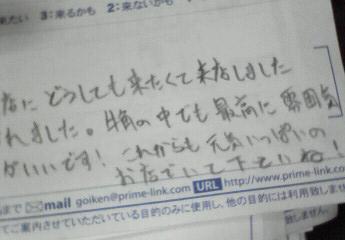 来たい 3:来るかも 2:来ないかも
店に どうしても来たくて来店しました
れました。牛角の中でも最高に雰囲気
がいいです! これからも元気いっぱいの
お店でいて下さいね!
まで mail goiken@prime-link.com URL http://www.prime-link.com
てご案内させていただいている目的のみに使用し、他の目的には利用致しませ
致しません